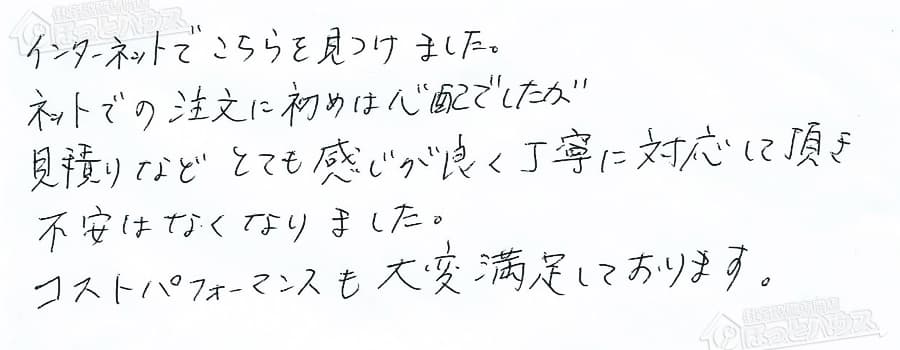 インターネットでこちらを見つけました。
ネットでの注文に初めは心配でしたが
見積りなど とても感じが良く丁寧に対応して頂き
不安はなくなりました。
コストパフォーマンスも大変満足しております。
ほっとハウス
ほっとハウス